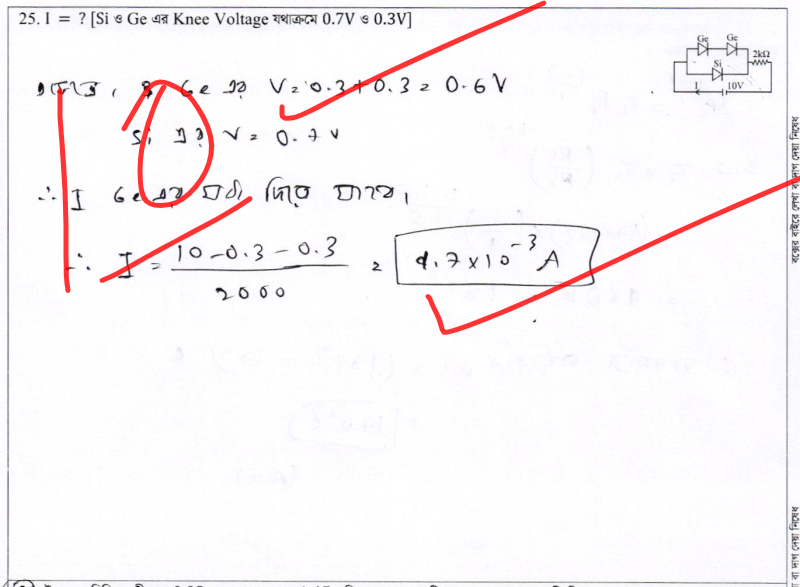 25. I = ? [Si ও Ge এর Knee Voltage যথাক্রমে 0.7V ও 0.3V]
Ge Ge
2kΩ
Si
I 10V
Ge এর V = 0.3 + 0.3 = 0.6 V
Si এর V = 0.7 V
∴ I Ge এর মধ্য দিয়ে যাবে।
∴ I = 10 - 0.3 - 0.3 / 2000 = 4.7 × 10⁻³ A
বক্সের বাইরে লেখা বা দাগ দেয়া নিষেধ
বা দাগ দেয়া নিষেধ